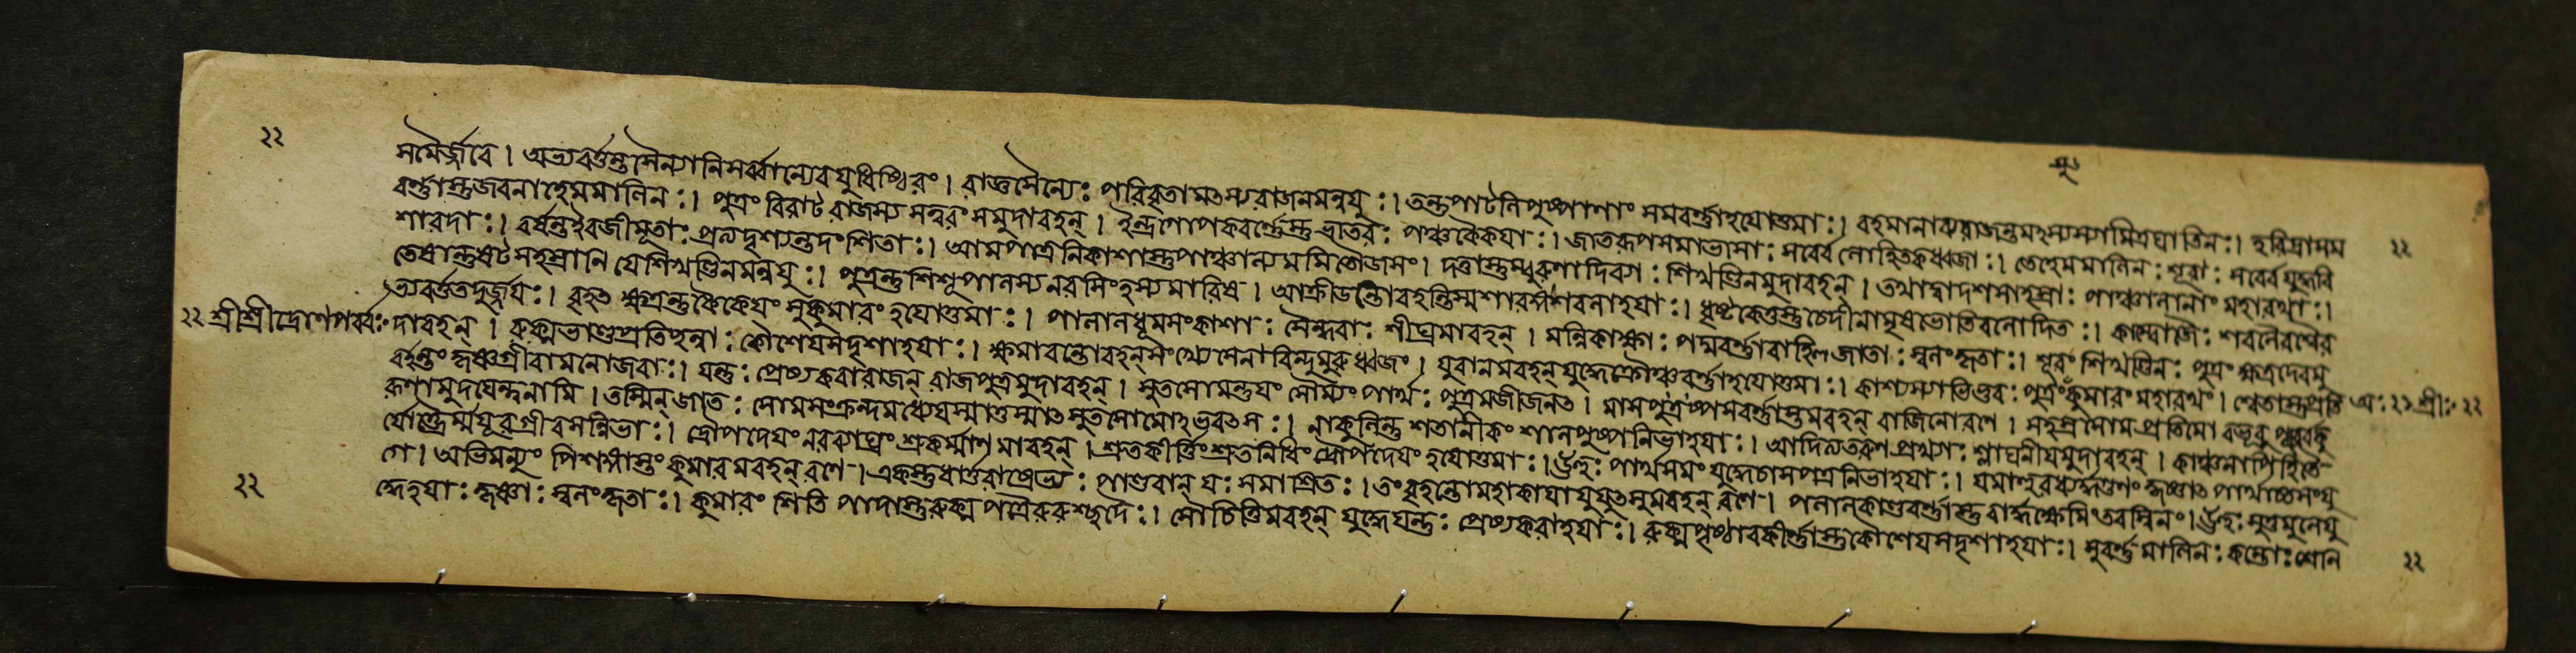 ২২ সমৈর্জ্জবে। অভ্যবর্ত্তন্তসৈন্যানিসর্ব্বাণ্যেবযুধিষ্ঠিরং। রাজ্ঞসৈন্যেঃ পরিবৃতামৎস্যরাজনমন্বযুঃ। তন্তুপাটলিপুষ্পাণাং সমবর্ণ্ণাহযোত্তমাঃ। বহমানাব্যরাজন্তমৎস্যস্যামিত্রঘাতিনঃ। হরিদ্রাসম
বর্ণ্ণাস্তুজবনাহেমমালিনঃ। পুত্রং বিরাটরাজস্য সত্বরং সমুদাবহন্। ইন্দ্রগোপকবর্ণ্ণৈস্তুভ্রাতরঃ পঞ্চকৈকযাঃ। জাতরূপসমাভাসাঃ সর্ব্বেলোহিতকধ্বজাঃ। তেহেমমালিনঃ শূরাঃ সর্ব্বেযুদ্ধবি ২২
শারদাঃ। বর্ষন্তইবজীমূতাঃ প্রত্যদৃশ্যন্তদংশিতাঃ। আমপাত্রনিকাশাস্তুপাঞ্চাল্যমমিতৌজসং। দত্তাস্তুম্বুরুণাদিব্যাঃ শিখণ্ডিনমুদাবহন্। তথাদ্বাদশসাহস্রাঃ পাঞ্চালানাং মহারথাঃ।
তেষান্তুষটসহস্রানি যেশিখণ্ডিনমন্বযুঃ। পুত্রন্তু শিশুপালস্য নরসিংহস্যমারিষ। আক্রীডন্তোবহন্তিস্মশারঙ্গশবলাহযাঃ। ধৃষ্টকেতুস্তুচেদীনামৃষভোতিবলোদিতঃ। কাম্বোজৈঃ শবলৈরশ্বৈর
ভ্যবর্ত্ততদুর্জযঃ। বৃহৎ ক্ষত্রন্তুকৈকেযং সুকুমারং হযোত্তমাঃ। পালালধূমসংকাশাঃ সৈন্ধবাঃ শীঘ্রমাবহন্। মল্লিকাক্ষাঃ পদ্মবর্ণ্ণাবাহ্লিজাতাঃ স্বলংকৃতাঃ। শূরং শিখণ্ডিনঃ পুত্রং ক্ষত্রদেবমু
২২ শ্রীশ্রীদ্রোণপর্ব্বঃ দাবহন্। রুক্মভাণ্ডপ্রতিচ্ছন্নাঃ কৌশেযসদৃশাহযাঃ। ক্ষমাবন্তোবহন্সংখ্যেসেনাবিন্দুমুরুধ্বজং। যুবানমবহন্যুদ্ধেক্রৌঞ্চবর্ণ্ণাহযোত্তমাঃ। কাশ্যস্যাভিভুবঃ পুত্রংসুকুমারং মহারথং। শ্বেতাস্তুপ্রতি অঃ ২২ শ্রীঃ ২২
বিন্ধ্যন্তং কৃষ্ণগ্রীবামনোজবাঃ। যন্তুঃ প্রেষ্যকরারাজন্ রাজপুত্রমুদাবহন্। সুতসোমন্তুযং সৌম্যং পার্থঃ পুত্রমজীজনৎ। মাসপুষ্পসবর্ণ্ণাস্তমবহন্ বাজিনোরণে। সহস্রসোমপ্রতিমো বভূব পুরেকু
রূণামুদযেন্দুনাম্নি। তস্মিন্ জাতঃ সোমসংক্রন্দমধ্যেযস্মাত্তস্মাৎ সুতসোমোহভবৎসঃ। নাকুলিন্তু শতানীকং শালপুষ্পনিভাহযাঃ। আদিত্যতরুণপ্রখ্যাঃ শ্লাঘনীযমুদাবহন্। কাঞ্চনাপিহিতৈ
র্যোক্ত্রৈর্ম্মযূরগ্রীবসন্নিভাঃ। দ্রৌপদেযং নরব্যাঘ্রং শ্রুতকর্ম্মাণমাবহন্। শ্রুতকীর্ত্তিংশ্রুতনিধিং দ্রৌপদেযং হযোত্তমাঃ। ঊহুঃ পার্থসমং যুদ্ধেচাসপত্রনিভাহযাঃ। যমাহুরধ্যর্দ্ধগুণং কৃষ্ণাৎ পার্থাচ্চসংযু
গে। অভিমন্যুং পিশঙ্গাস্তং কুমারমবহন্ রণে। একস্তুধার্ত্তরাষ্ট্রেভ্যঃ পাণ্ডবান্ যঃ সমাশ্রিতঃ। তংবৃহন্তোমহাকাযাযুযুৎসুমবহন্ রণে। পলালকাণ্ডবর্ণ্ণাস্তু বার্দ্ধক্ষেমিংতরস্বিনং। ঊহুঃ সুতুমুলেযু
২২ দ্ধেহযাঃ কৃষ্ণাঃ স্বলংকৃতাঃ। কুমারং শিতিপাদাস্তুরুক্মপত্রৈরুরশ্ছদৈঃ। সৌচিত্তিমবহন্ যুদ্ধেযন্তুঃ প্রেষ্যকরাহযাঃ। রুক্মপৃষ্ঠাবকীর্ণ্ণাস্তুকৌশেযসদৃশাহযাঃ। সুবর্ণ্ণমালিনঃ ক্ষান্তাঃ শ্রেণি ২২